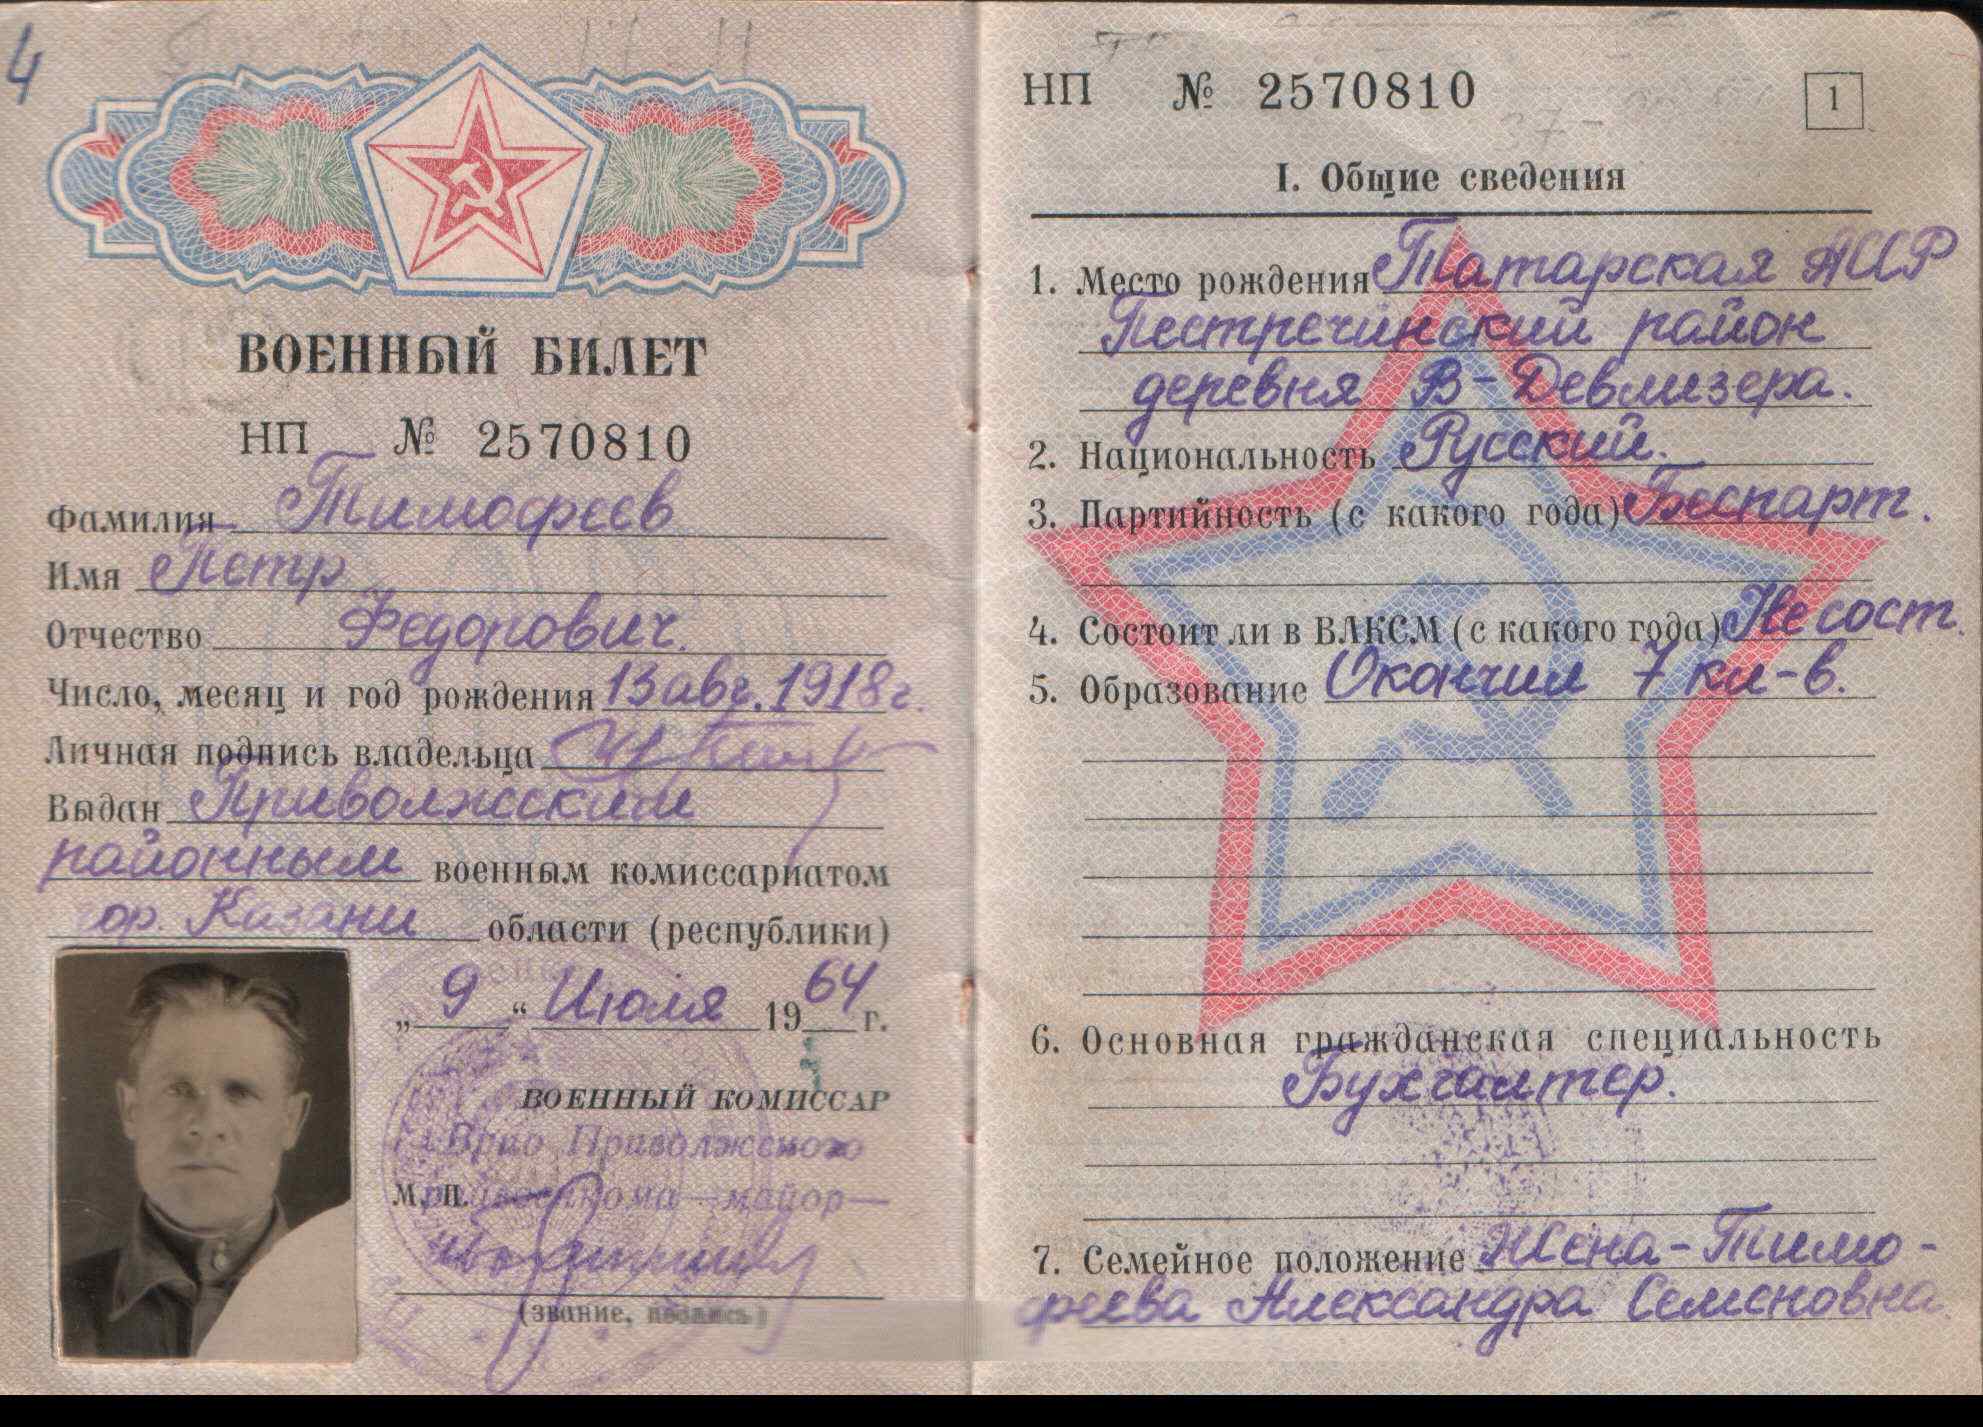 4
ВОЕННЫЙ БИЛЕТ
НП № 2570810
Фамилия Тимофеев
Имя Петр
Отчество Федорович.
Число, месяц и год рождения 13 авг. 1918 г.
Личная подпись владельца
Выдан Приволжским
районным военным комиссариатом
гор. Казани области (республики)
„ 9 “ Июля 1964 г.
ВОЕННЫЙ КОМИССАР
Врио Приволжского
М. П. райвоенкома майор
(звание, подпись)
НП № 2570810
1
37-
I. Общие сведения
1. Место рождения Татарская АССР
Пестречинский район
деревня В-Девлизера.
2. Национальность Русский.
3. Партийность (с какого года) Беспарт.
4. Состоит ли в ВЛКСМ (с какого года) Не сост.
5. Образование Окончил 7 кл-в.
6. Основная гражданская специальность
Бухгалтер.
7. Семейное положение Жена - Тимо-
феева Александра Семеновна